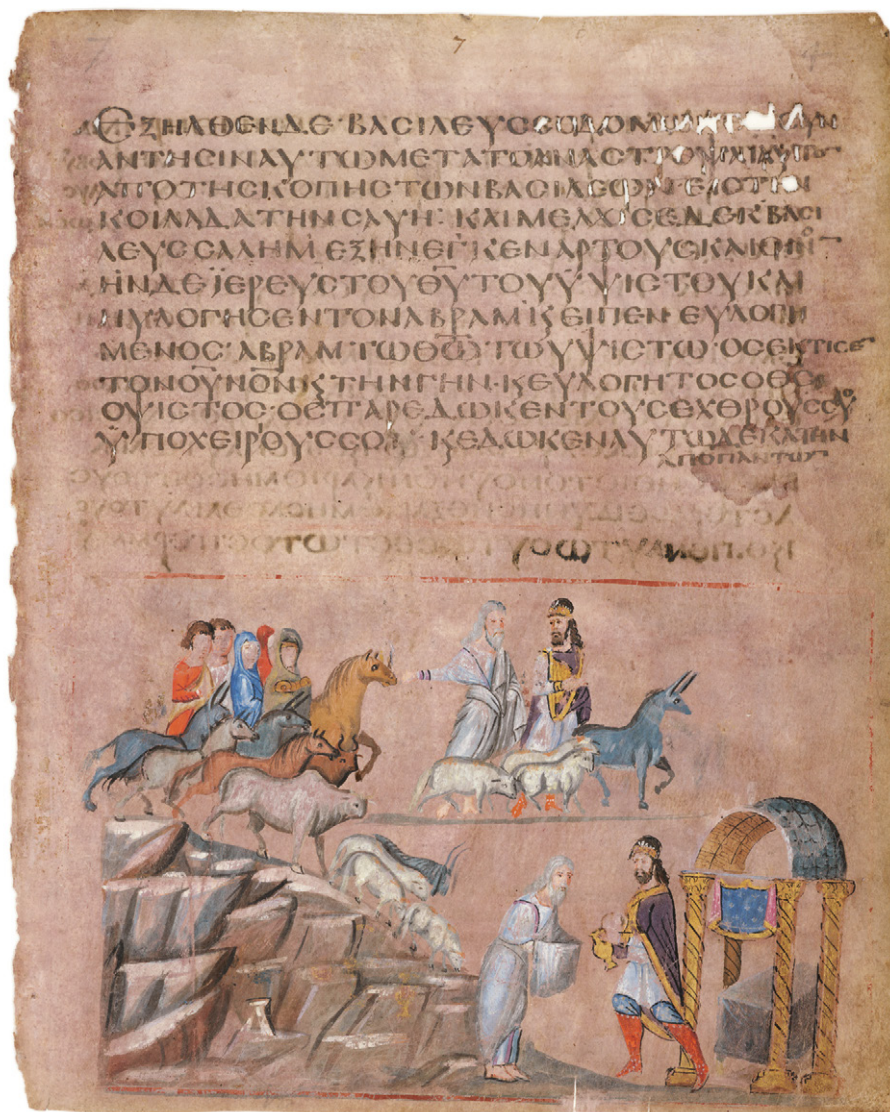 7
ΕΞΗΛΘΕΝΔΕ·ΒΑСΙΛΕΥССΟΔΟΜ
ΑΝΤΗСΙΝΑΥΤΩΜΕΤΑΤΟΑΝΑСΤΡΟ
ΑΠΟΤΗСΚΟΠΗСΤΩΝΒΑСΙΛΕΩΝ·ΕΙСΤΗΝ
ΚΟΙΛΑΔΑΤΗΝСΑΥΗ: ΚΑΙΜΕΛΧΙСΕΔΕΚΒΑСΙ
ΛΕΥССΑΛΗΜ ΕΞΗΝΕΓΚΕΝΑΡΤΟΥСΚΑΙΟΙΝΟ̅
ΗΝΔΕΪΕΡΕΥСΤΟΥΘ̅Υ̅ΤΟΥΫΨΙСΤΟΥΚΑΙ
ΗΥΛΟΓΗСΕΝΤΟΝΑΒΡΑΜ·ϏΕΙΠΕΝ·ΕΥΛΟΓΗ
ΜΕΝΟС·ΑΒΡΑΜ·ΤΩΘ̅Ω̅·ΤΩΥΨΙСΤΩ·ΟСΕΚΤΙСΕ̅
ΤΟΝΟΥΝΟ̅Ν̅ϏΤΗΝΓΗΝ·ϏΕΥΛΟΓΗΤΟСΟΘ̅С̅
ΟΥΨΙСΤΟС·ΟСΠΑΡΕΔΩΚΕΝΤΟΥСΕΧΘΡΟΥССΟΥ
ΫΠΟΧΕΙΡΟΥССΟΙ· ϏΕΔΩΚΕΝΑΥΤΩΔΕΚΑΤΗΝ
ΑΠΟΠΑΝΤΩ̅